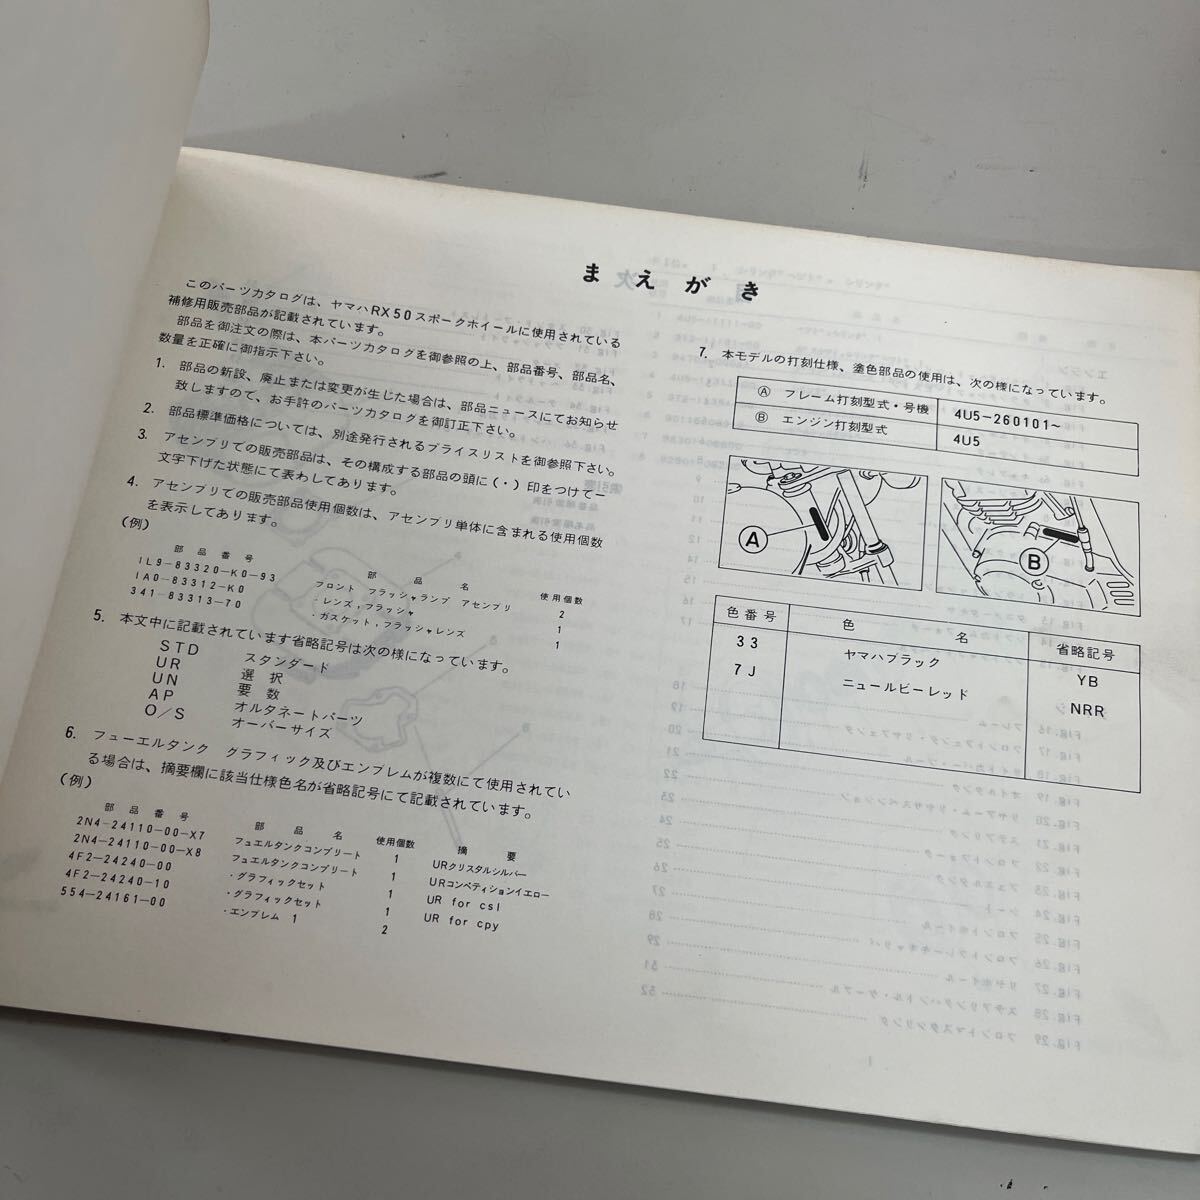 まえがき
このパーツカタログは、ヤマハRX50スポークホイールに使用されている
補修用販売部品が記載されています。
部品を御注文の際は、本パーツカタログを御参照の上、部品番号、部品名、
数量を正確に御指示下さい。
1. 部品の新設、廃止または変更が生じた場合は、部品ニュースにてお知らせ
致しますので、お手許のパーツカタログを御訂正下さい。
2. 部品標準価格については、別途発行されるプライスリストを御参照下さい。
3. アセンブリでの販売部品は、その構成する部品の頭に(・)印をつけて一
文字下げた状態にて表わしてあります。
4. アセンブリでの販売部品使用個数は、アセンブリ単体に含まれる使用個数
を表示してあります。
(例)
部品番号 部品名 使用個数
1L9-83320-K0-93 フロント フラッシャランプ アセンブリ 2
1A0-83312-K0 ・レンズ,フラッシャ 1
341-83313-70 ・ガスケット,フラッシャレンズ 1
5. 本文中に記載されています省略記号は次の様になっています。
STD スタンダード
UR 選択
UN 要数
AP オルタネートパーツ
O/S オーバーサイズ
6. フューエルタンク グラフィック及びエンブレムが複数にて使用されてい
る場合は、摘要欄に該当仕様色名が省略記号にて記載されています。
(例)
部品番号 部品名 使用個数 摘要
2N4-24110-00-X7 フュエルタンクコンプリート 1 URクリスタルシルバー
2N4-24110-00-X8 フュエルタンクコンプリート 1 URコンペティションイエロー
4F2-24240-00 ・グラフィックセット 1 UR for csl
4F2-24240-10 ・グラフィックセット 1 UR for cpy
554-24161-00 ・エンブレム 1 2
7. 本モデルの打刻仕様、塗色部品の使用は、次の様になっています。
Ⓐ フレーム打刻型式・号機 4U5-260101~
Ⓑ エンジン打刻型式 4U5
A
B
色番号 色名 省略記号
33 ヤマハブラック YB
7J ニュールビーレッド NRR